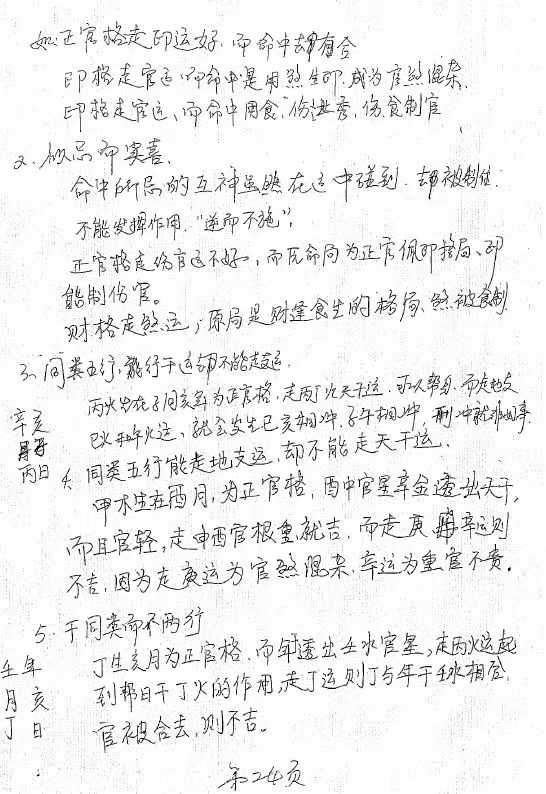 如正官格走印运好,而命中却有合
印格走官运,而命中是用煞生印,成为官煞混杂.
印格走官运、而命中用食、伤泄秀,伤食制官
2、似忌而实喜.
命中所忌的五神虽然在运中碰到.却被制住.
不能发挥作用."逆而不施";
正官格走伤官运不好,而原命局为正官佩印格局、印
能制伤官。
财格走煞运,原局是财逢食生的格局、煞被食制
3、同类五行,能行干运却不能走支运.
丙火生在子月亥年为正官格,走丙丁火天干运.可以帮身.而走地支
巳火午火运,就会发生巳亥相冲.子午相冲,刑冲就非好事
辛亥
子
丙日
4、同类五行能走地支运,却不能走天干运.
甲木生在酉月,为正官格,酉中官星辛金透出天干,
而且官轻,走申酉官根重就吉,而走庚辛运则
不吉,因为走庚运为官煞混杂.辛运为重官不贵.
5.干同类而不两行
壬年 丁生亥月为正官格.而年透出壬水官星,走丙火运起
月亥 到帮日干丁火的作用,走丁运则丁与年干壬水相合,
丁日 官被合去,则不吉。
第24页